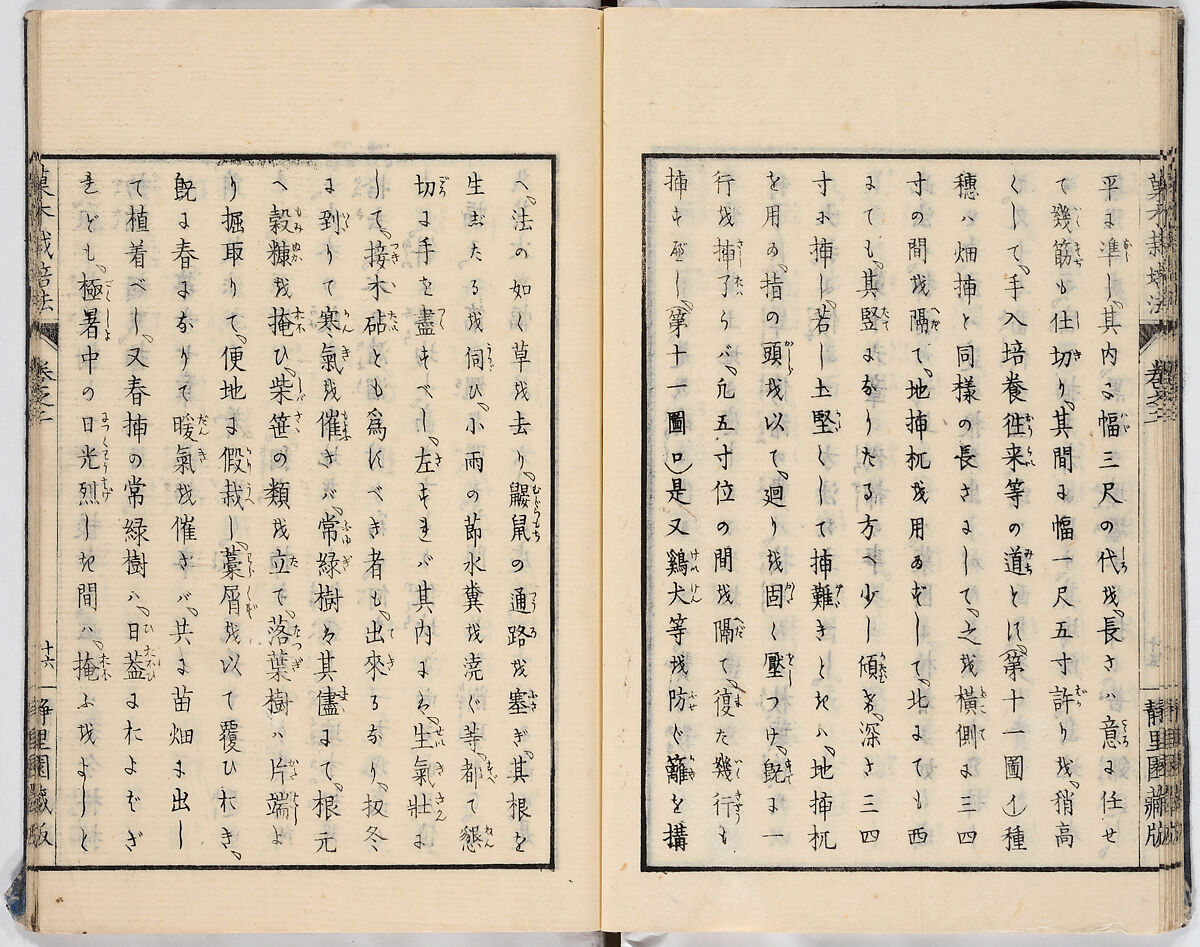 菓木栽培法
卷之二
靜里園藏版
平に準し、其内に幅三尺の代を、長さハ意に任せ
て幾筋も仕切り、其間に幅一尺五寸許りを、稍高
くして、手入培養徃来等の道とに、第十一圖(イ)種
穗ハ畑挿と同様の長さにして、之を横側に三四
寸の間を隔て、地挿杌を用ゐずして、北にても西
にても、其竪になりたる方へ少し傾き、深さ三四
寸に挿し、若し土堅くして挿難きときハ、地挿杌
を用ゐ、指の頭を以て、廻りを固く壓つけ、既に一
行を挿了らバ、凢五寸位の間を隔て、復た幾行も
挿すべし、第十一圖(ロ)是又鷄犬等を防ぐ籬を搆
へ、法の如く草を去り、鼴鼠の通路を塞ぎ、其根を
生じたるを伺ひ、小雨の節水糞を澆ぐ等、都て懇
切に手を盡すべし、左すれバ其内にハ、生氣壯に
して、接木砧とも爲にべき者も、出來るなり、扨冬
に到りて寒氣を催さバ、常緑樹ハ其儘にて、根元
へ穀糠を掩ひ、柴笹の類を立て、落葉樹ハ片端よ
り掘取りて、便地に假栽し、藁屑を以て覆ひおき、
既に春になりて暖氣を催さバ、共に苗畑に出し
て植着べし、又春挿の常緑樹ハ、日葢におよばざ
れども、極暑中の日光烈しき間ハ、掩ふをよしと
菓木栽培法
卷之二
十六
靜里園藏版